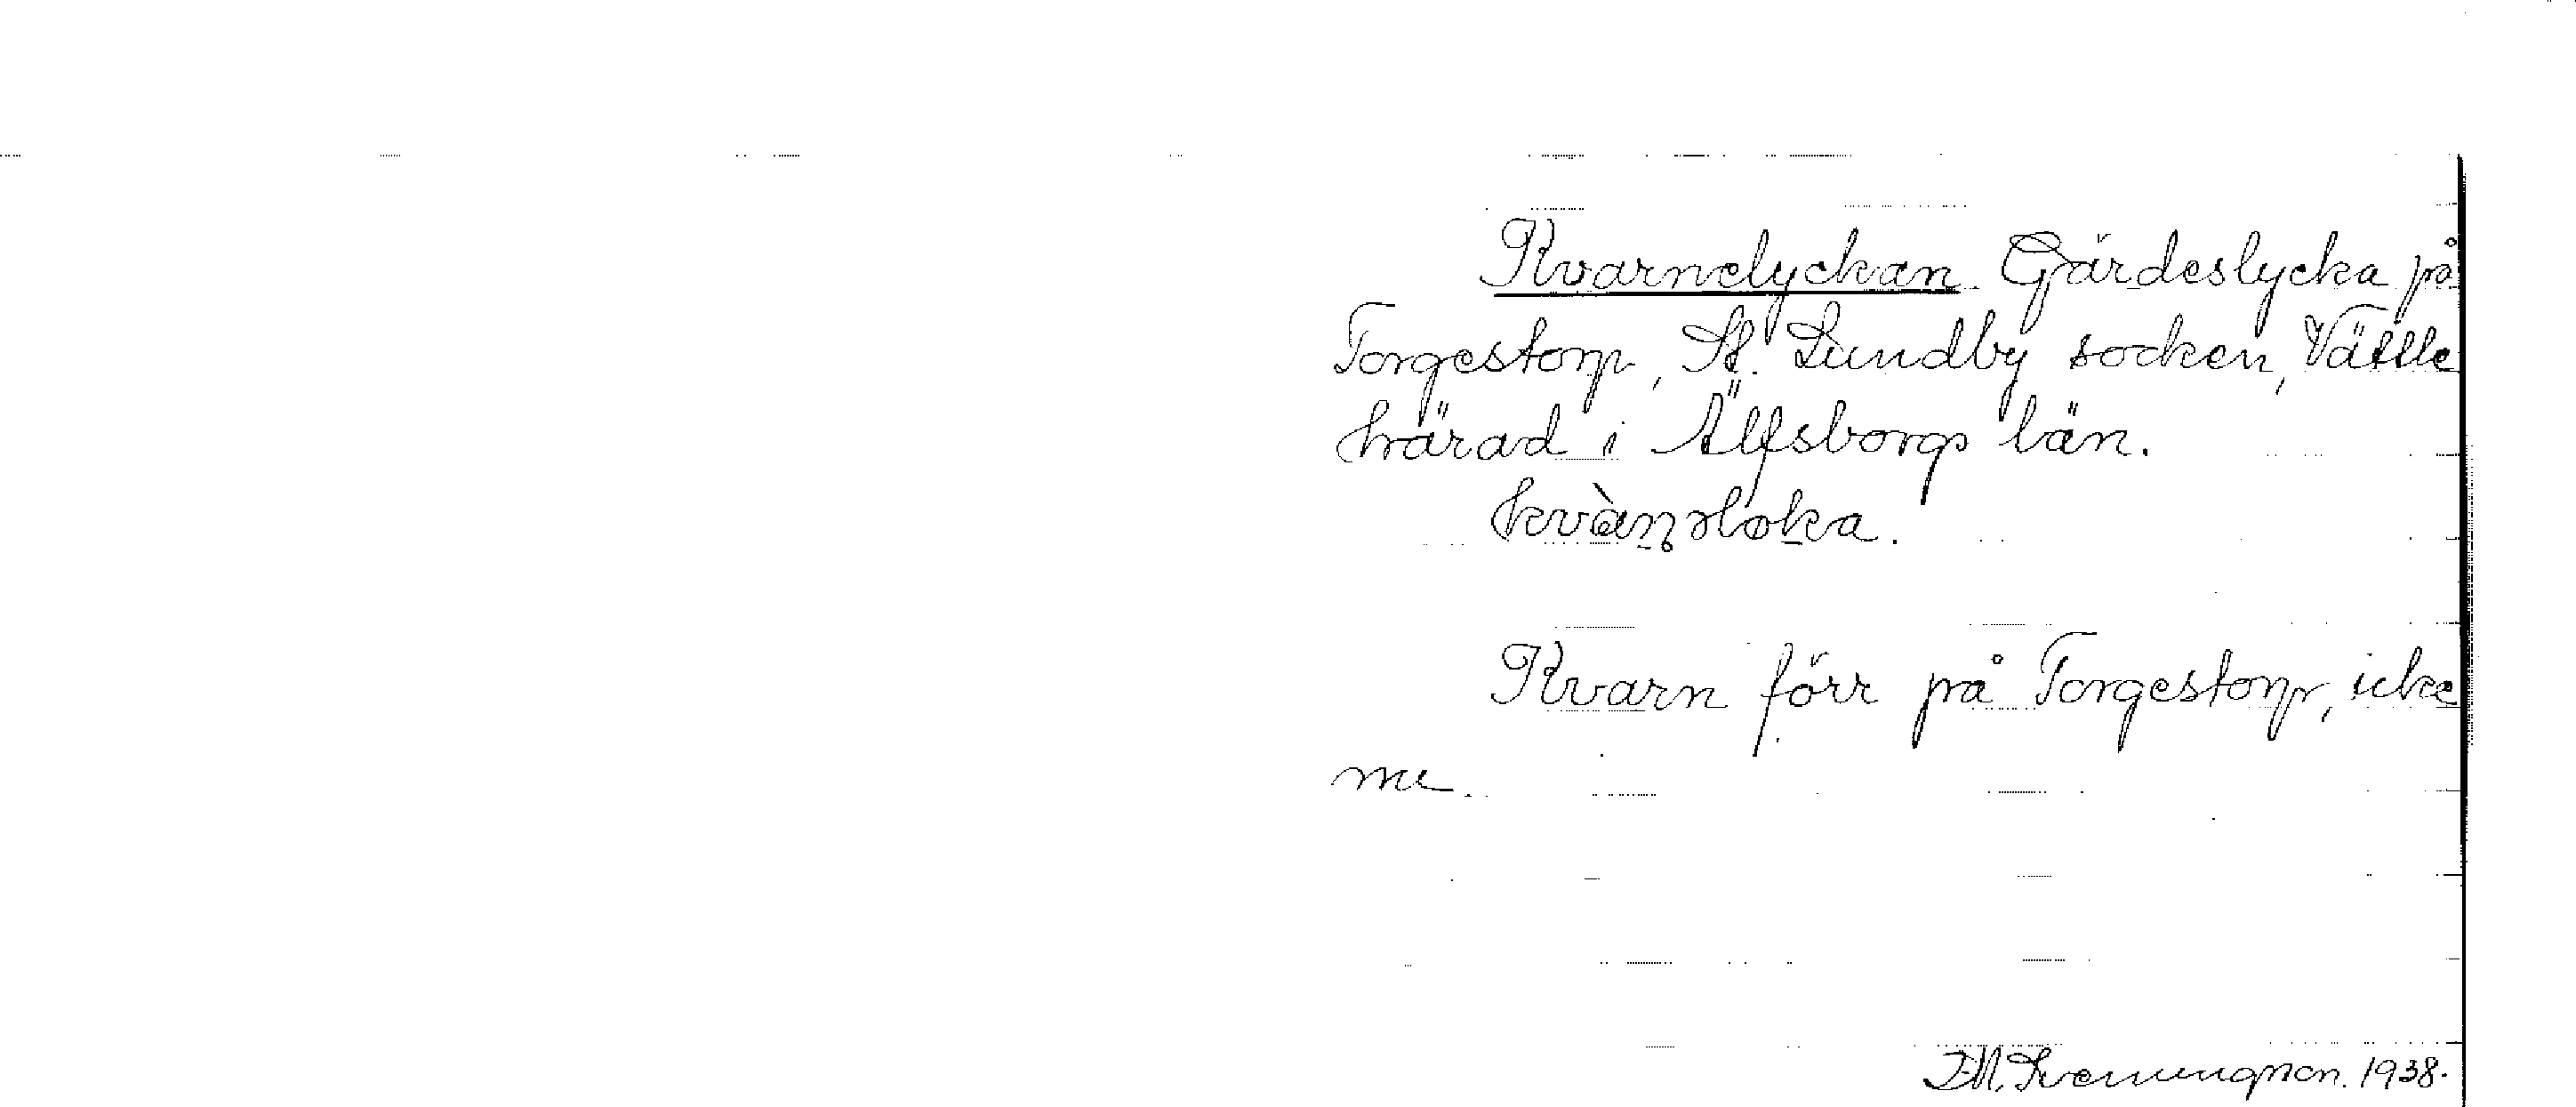 Kvarnelyckan. Gärdeslycka på
Torgestorp, St. Lundby socken, Vättle
härad i Älfsborgs län.
Kvarn förr på Torgestorp, icke
nu.
1938.